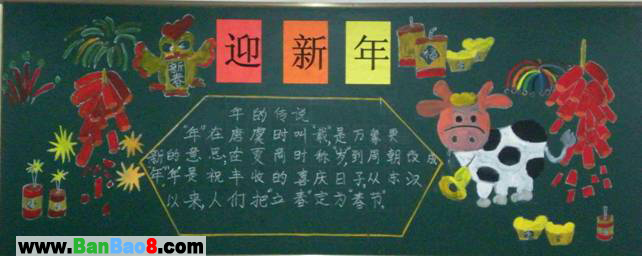 迎新年
新春
福
年的传说
"年"在唐虞时叫"载",是万象更
新的意思,在夏商时称"岁",到周朝改成
年,"年"是祝丰收的喜庆日子,从东汉
以来,人们把"立春"定为"春节"
www.BanBao8.com